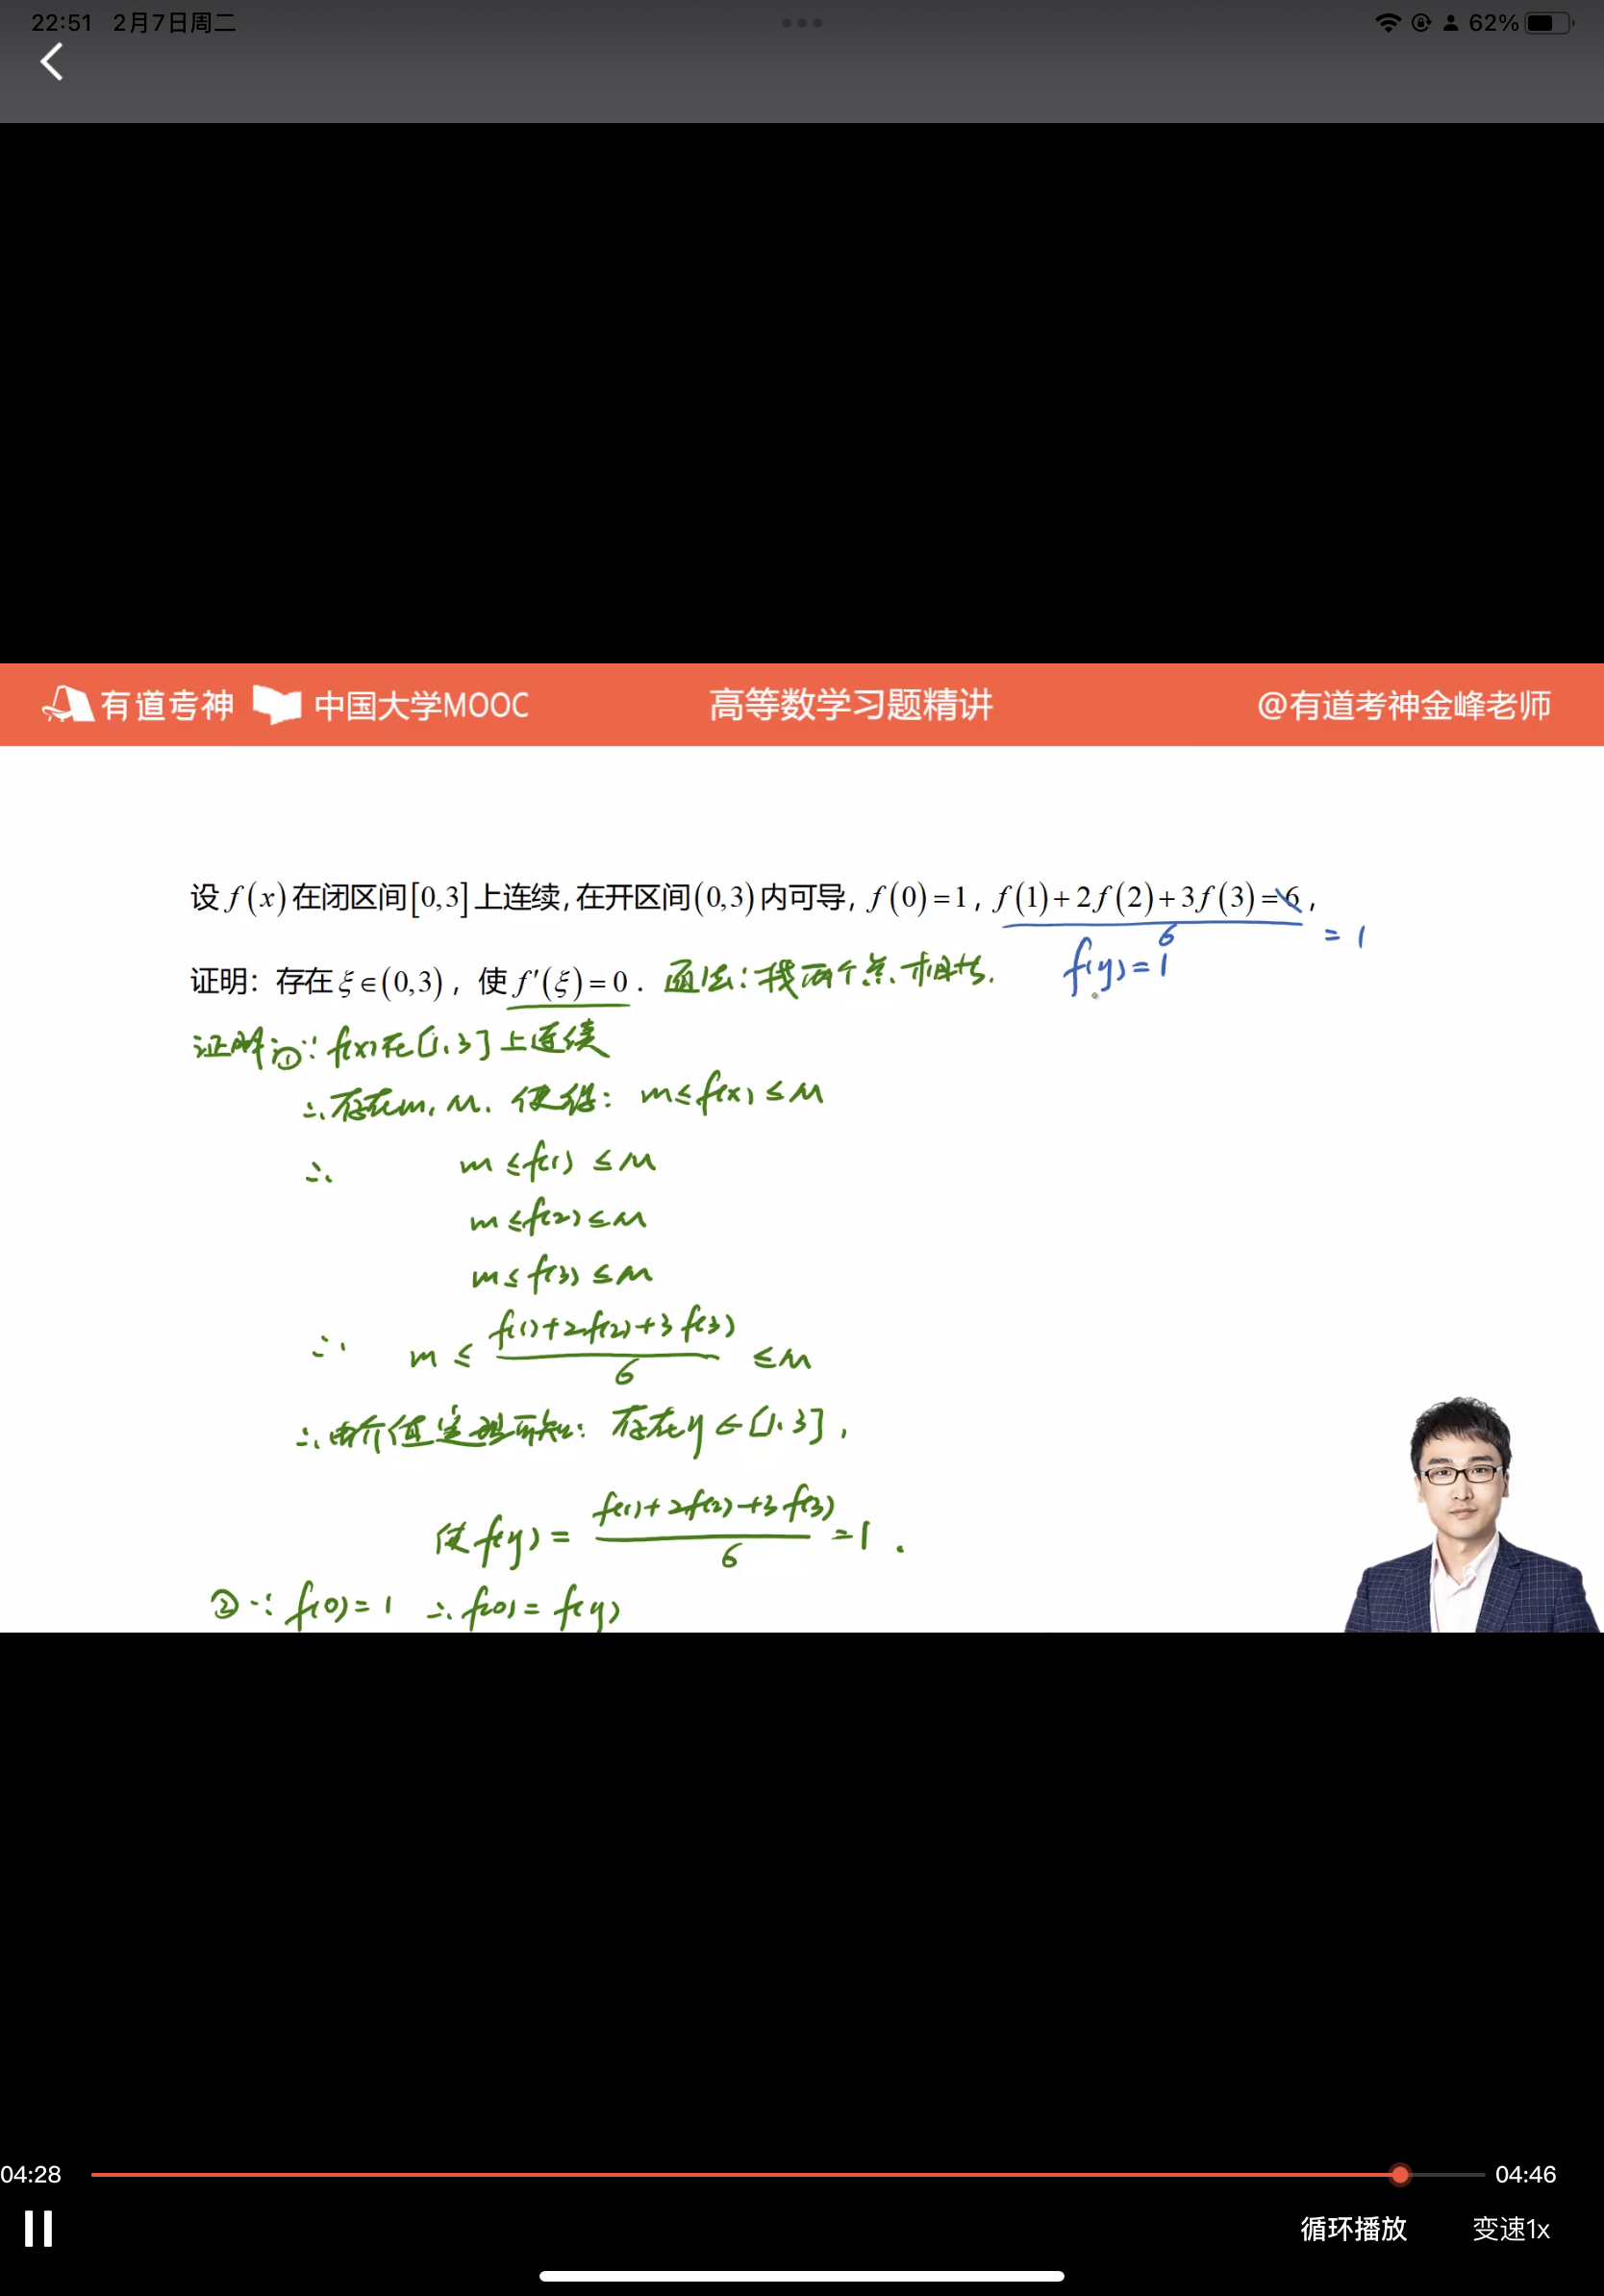 22:51 2月7日周二 62%
有道考神 中国大学MOOC 高等数学习题精讲 @有道考神金峰老师
设 f(x) 在闭区间[0,3]上连续,在开区间(0,3)内可导, f(0)=1, f(1)+2f(2)+3f(3)=6,
6 = 1
证明：存在 ξ∈(0,3)，使 f′(ξ)=0. 画法:找两个点相等. f(y)=1
证明:①∵ f(x)在[1.3]上连续
∴存在m,M.使得: m≤f(x)≤M
∴ m≤f(1)≤M
m≤f(2)≤M
m≤f(3)≤M
∴ m≤ f(1)+2f(2)+3f(3) / 6 ≤M
∴由介值定理可知: 存在y∈[1.3],
使f(y)= f(1)+2f(2)+3f(3) / 6 =1.
②∵ f(0)=1 ∴f(0)=f(y)
04:28 04:46
循环播放 变速1x